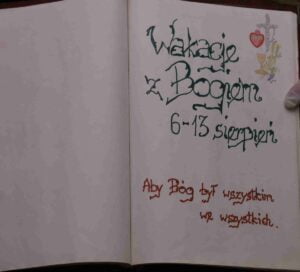 Wakacje
z Bogiem
6-13 sierpień
Aby Bóg był wszystkim
we wszystkich.